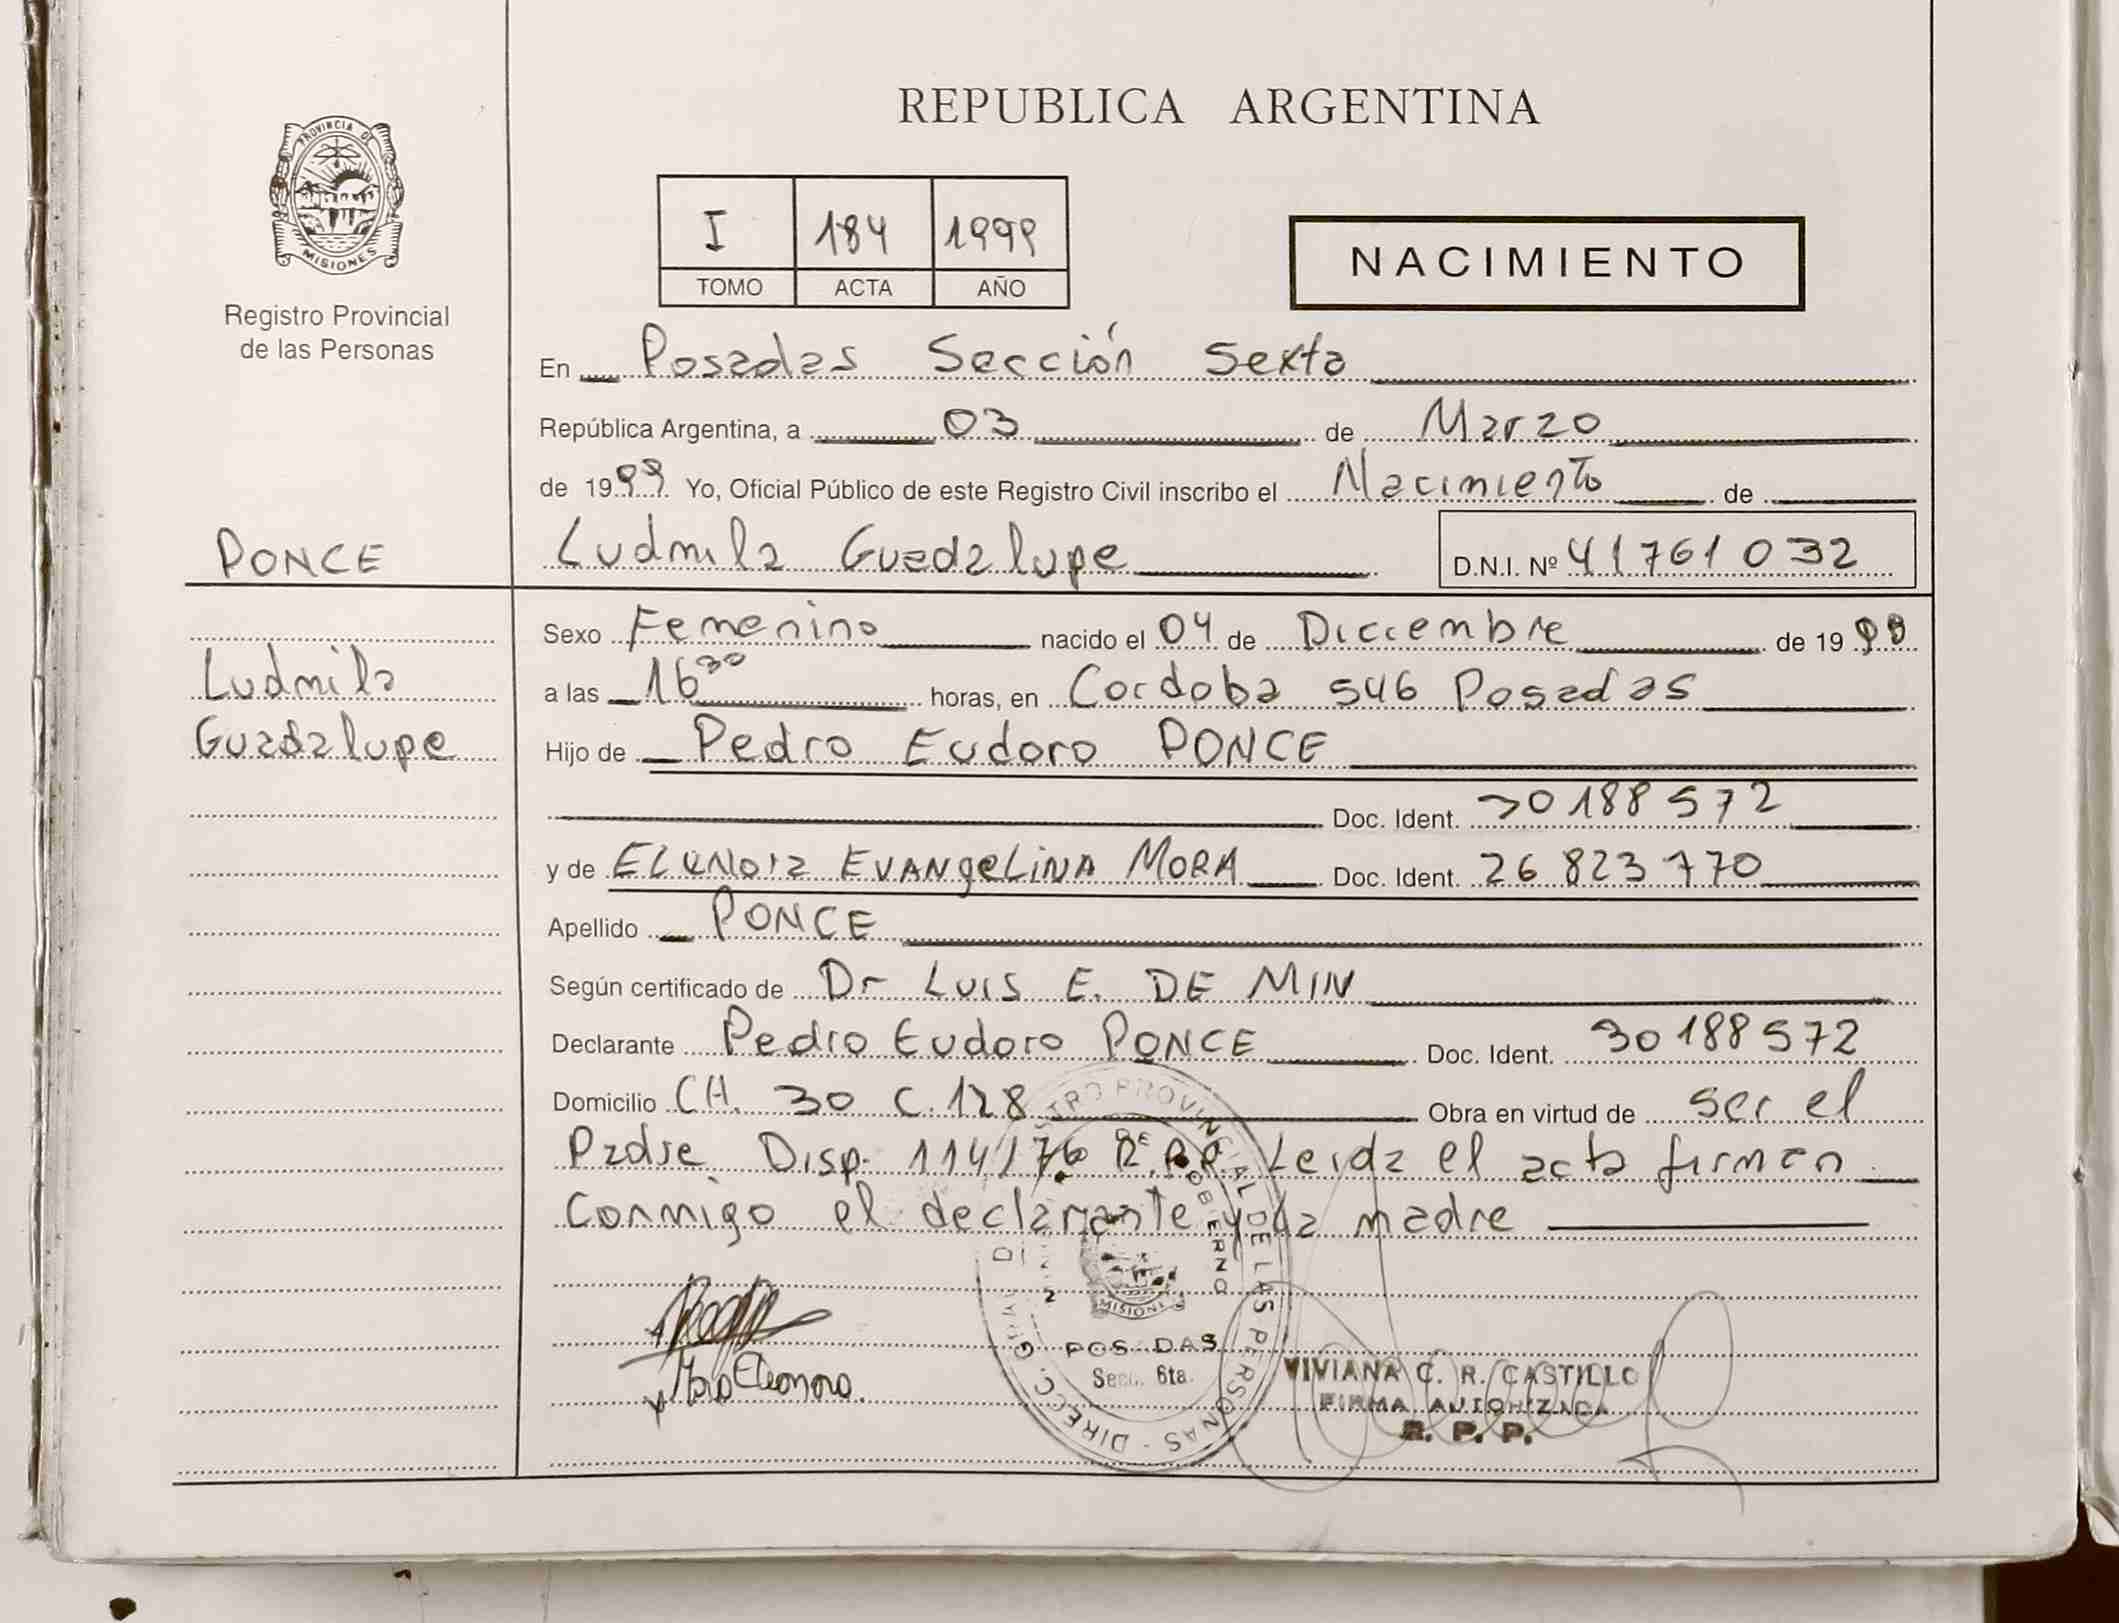 PROVINCIA DE
MISIONES
Registro Provincial
de las Personas
REPUBLICA ARGENTINA
I 184 1999
TOMO ACTA AÑO
NACIMIENTO
En Posadas Sección Sexta
República Argentina, a 03 de Marzo
de 1999 Yo, Oficial Público de este Registro Civil inscribo el Nacimiento de
PONCE
Ludmila Guadalupe D.N.I. Nº 41761032
Ludmila
Guadalupe
Sexo Femenino nacido el 04 de Diciembre de 19
a las 16³⁰ horas, en Cordoba 546 Posadas
Hijo de Pedro Eudoro PONCE
Doc. Ident. 30188572
y de Evangelina MORA Doc. Ident. 26823770
Apellido PONCE
Según certificado de Dr Luis E. DE MIN
Declarante Pedro Eudoro PONCE Doc. Ident. 30188572
Domicilio CH. 30 C. 128 Obra en virtud de ser el
Padre Disp. 114/76 Leida el acta firman
Conmigo el declarante y la madre
REGISTRO PROVINCIAL DE LAS PERSONAS - DIRECC.
GOBIERNO
MISIONES
POSADAS
Secc. 6ta.
VIVIANA C. R. CASTILLO
FIRMA AUTORIZADA
R. P. P.